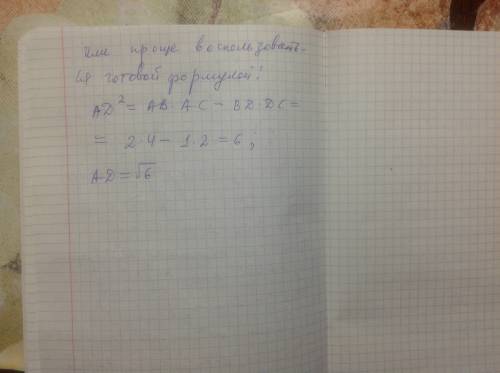 или проще воспользовать-
ся готовой формулой!
AD² = AB · AC − BD · DC =
= 2·4 − 1·2 = 6 ;
AD = √6